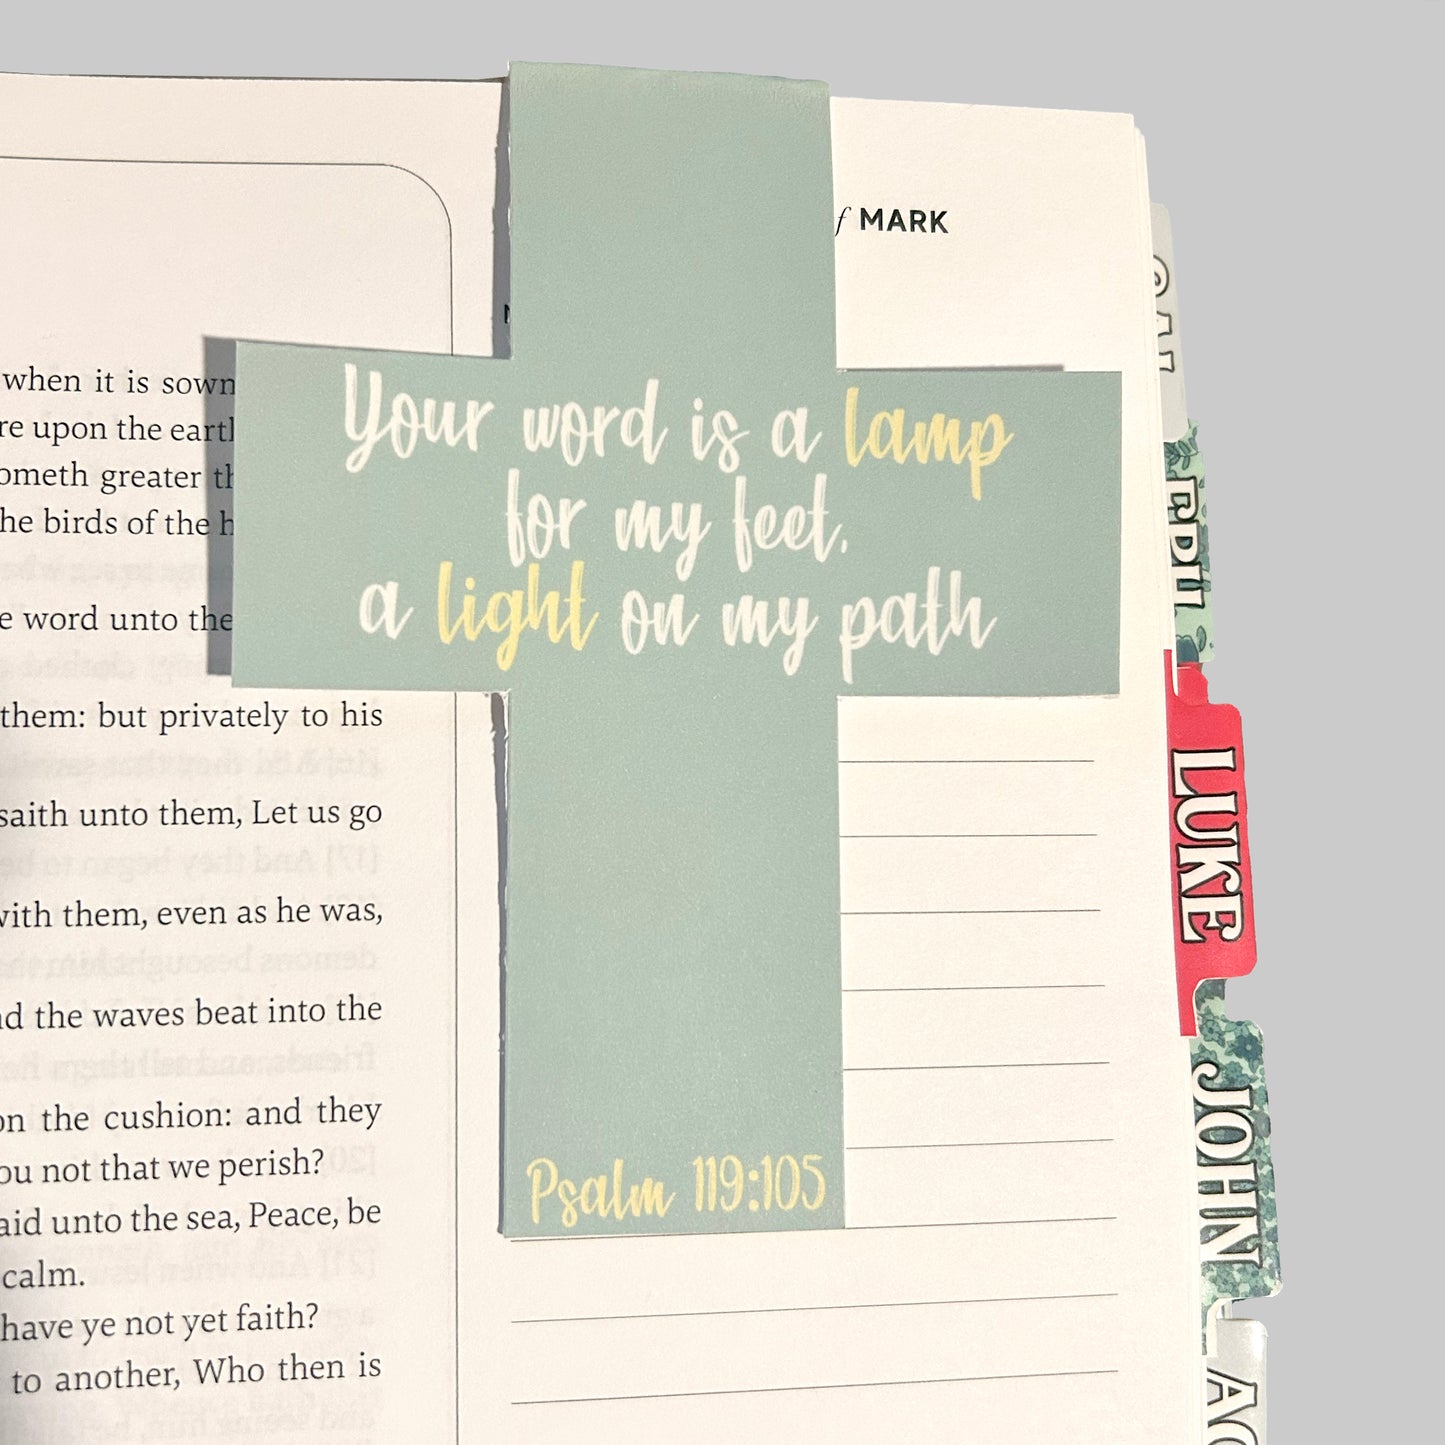 f MARK
when it is sown
upon the
greater
birds of the
Your word is a lamp
for my feet,
a light on my path
word unto the
them: but privately to his
saith unto them, Let us go
with them, even as he was,
the waves beat into the
on the cushion: and they
not that we perish?
unto the sea, Peace, be
calm.
have ye not yet faith?
to another, Who then is
Psalm 119:105
GAL
EPH
LUKE
JOHN